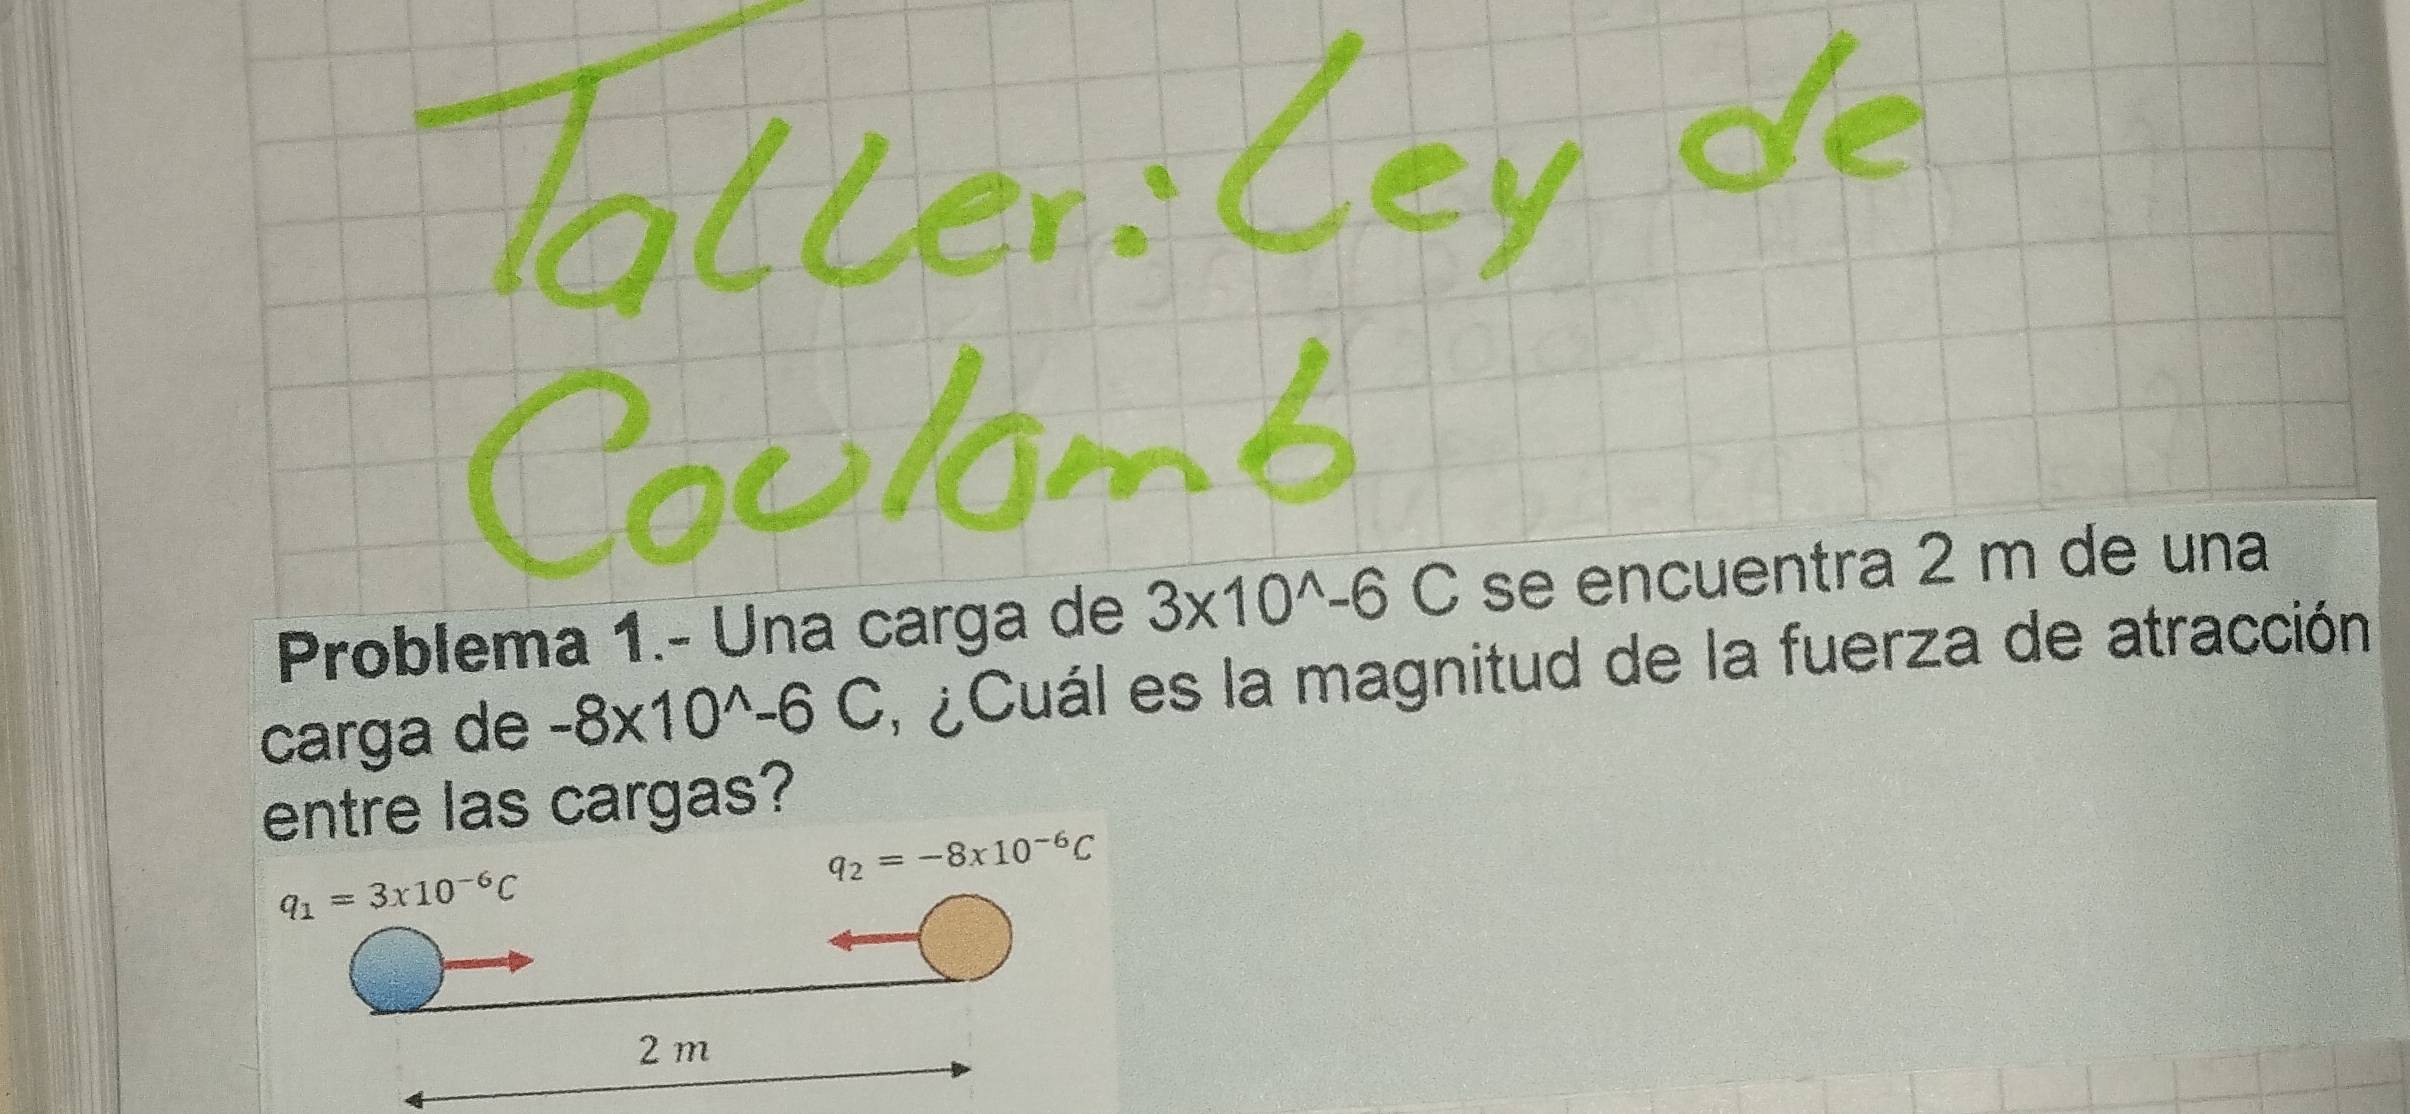 Taller: Ley de
Coulomb
Problema 1.- Una carga de 3x10^-6 C se encuentra 2 m de una
carga de -8x10^-6 C, ¿Cuál es la magnitud de la fuerza de atracción
entre las cargas?
q₁ = 3x10⁻⁶C
q₂ = −8x10⁻⁶C
2 m